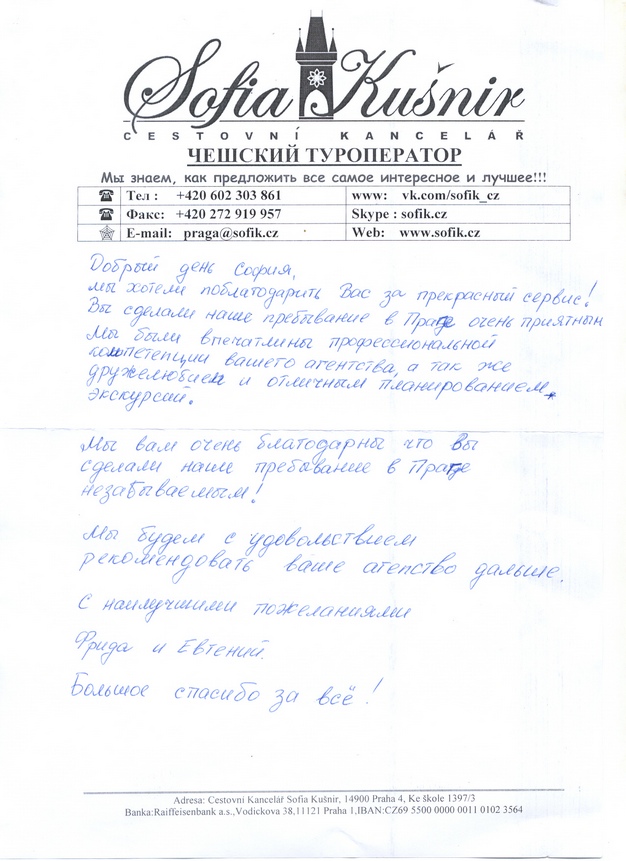 Sofia Kušnir
CESTOVNÍ KANCELÁŘ
ЧЕШСКИЙ ТУРОПЕРАТОР
Мы знаем, как предложить все самое интересное и лучшее!!!
Тел : +420 602 303 861 www: vk.com/sofik_cz
Факс: +420 272 919 957 Skype : sofik.cz
E-mail: praga@sofik.cz Web: www.sofik.cz
Добрый день София,
мы хотели поблагодарить Вас за прекрасный сервис!
Вы сделали наше пребывание в Праге очень приятным
Мы были впечатлины профессиональной
компетенции вашего агентства, а так же
дружелюбием и отличным планированием
экскурсий.
Мы вам очень благодарны что Вы
сделали наше пребывание в Праге
незабываемым!
Мы будем с удовольствием
рекомендовать ваше агенство дальше.
С наилучшими пожеланиями
Фрида и Евгений.
Большое спасибо за всё!
Adresa: Cestovní Kancelář Sofia Kušnir, 14900 Praha 4, Ke škole 1397/3
Banka:Raiffeisenbank a.s.,Vodickova 38,11121 Praha 1,IBAN:CZ69 5500 0000 0011 0102 3564